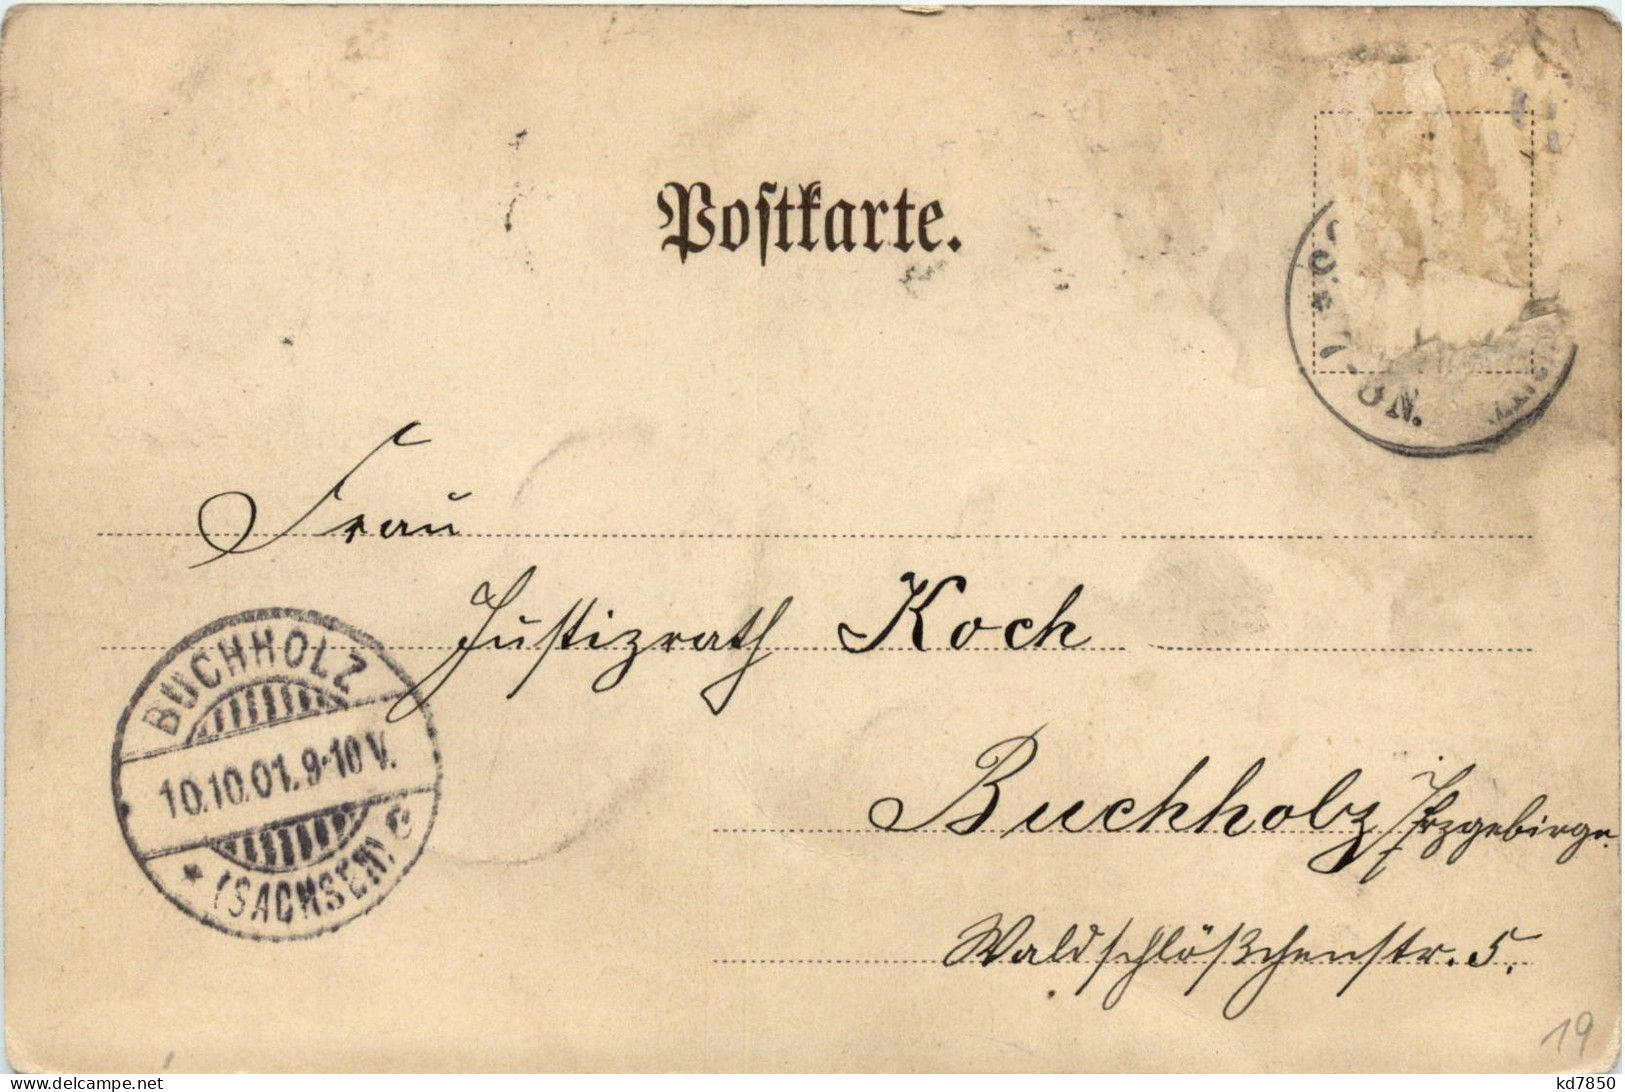 Postkarte.
Frau
Justizrath Koch
Buchholz / Erzgebirge.
Waldschlößchenstr. 5.
BUCHHOLZ
10.10.01. 9-10 V.
* (SACHSEN) c
N.
19
kd7850
www.delcampe.net